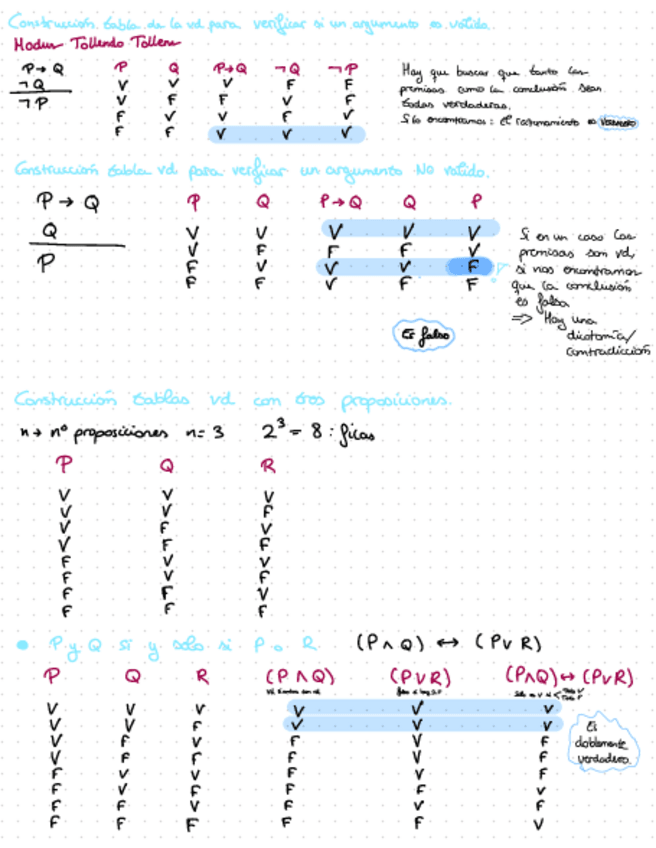 Construcción tabla de la vd para verificar si un argumento es valido.
Modus Tollendo Tollens
P → Q P Q P→Q ¬Q ¬P
¬Q V V V F F
¬P V F F V F
F V V F V
F F V V V
Hay que buscar que tanto las
premisas como la conclusión sean
todas verdaderas.
Si lo encontramos: el razonamiento es verdadero
Construcción tabla vd para verificar un argumento No valido.
P → Q P Q P→Q Q P
Q V V V V V
P V F F F V
F V V V F
F F V F F
Si en un caso las
premisas son vd,
si nos encontramos
que la conclusión
es falsa
=> Hay una
dicotomía/
contradicción
Es falso
Construcción tablas vd con tres proposiciones.
n → nº proposiciones n = 3 2³ = 8 : filas
P Q R
V V V
V V F
V F V
V F F
F V V
F V F
F F V
F F F
• P y Q si y solo si P o R. (P ∧ Q) ↔ (P ∨ R)
P Q R (P ∧ Q) (P ∨ R) (P∧Q)↔(P∨R)
V V V V V V
V V F V V V
V F V F V F
V F F F V F
F V V F V F
F V F F F V
F F V F V F
F F F F F V
Es
doblemente
verdadero.